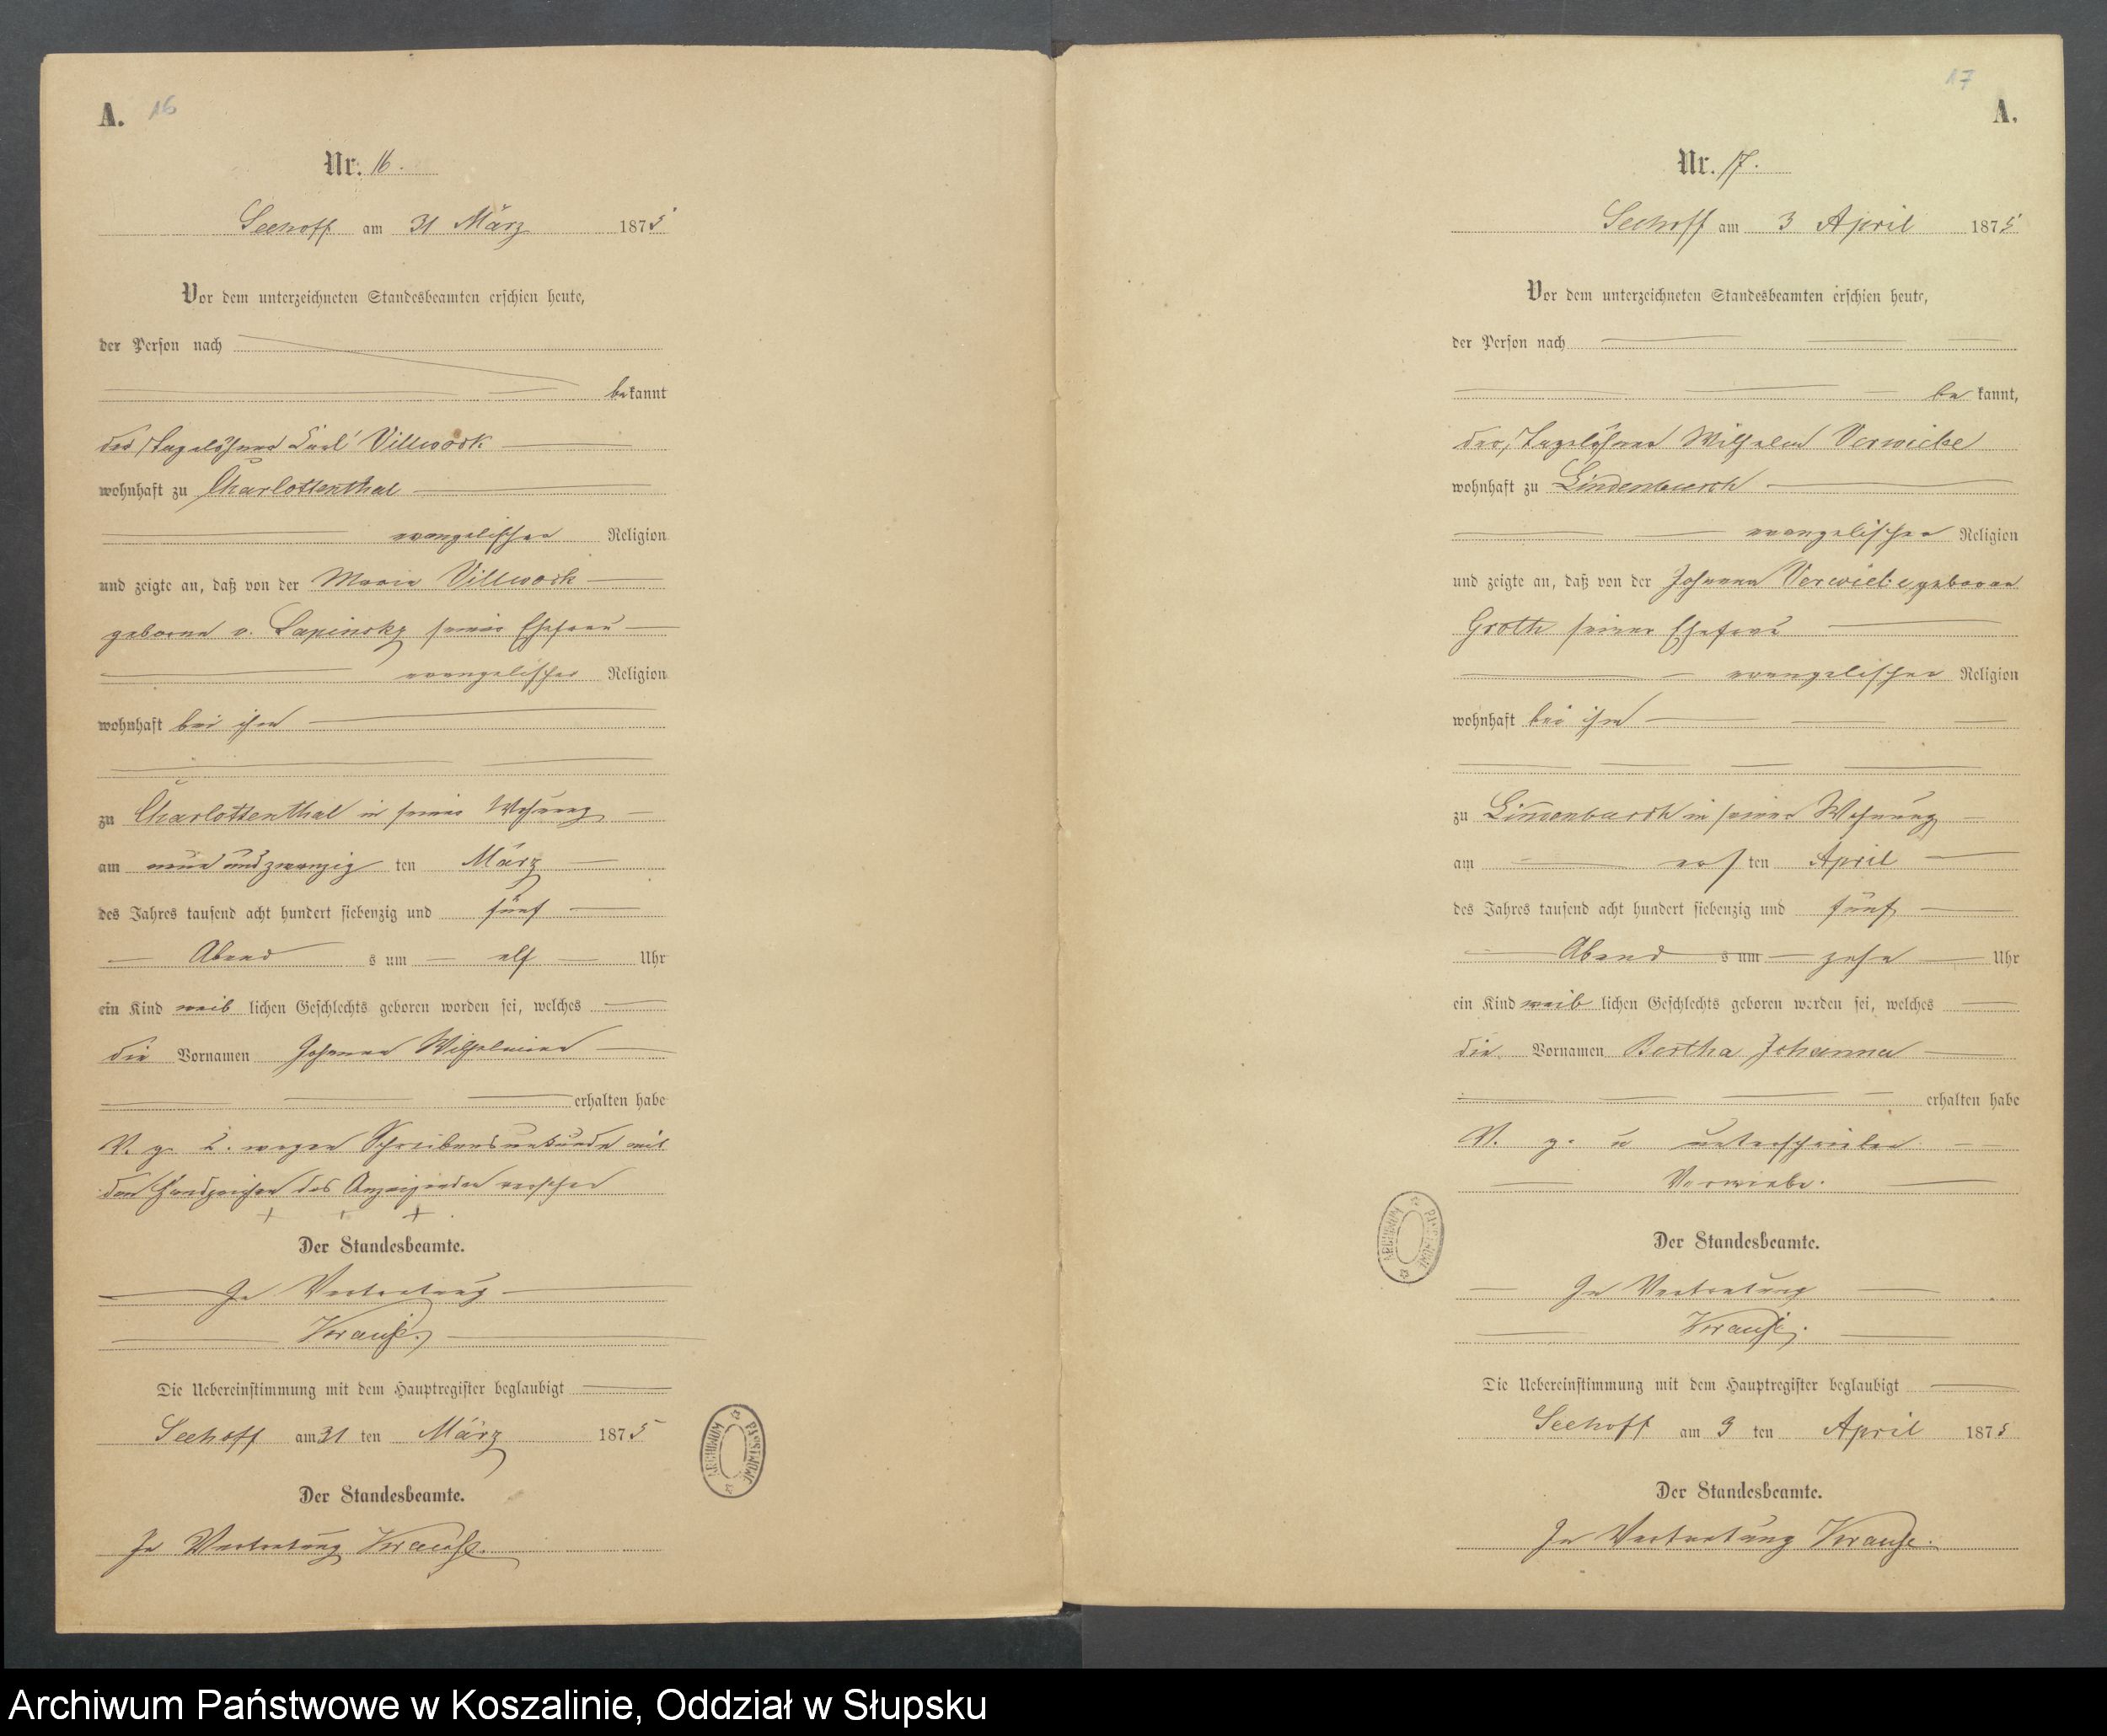 A. 16
Nr. 16.
Seehoff am 31 März 1875
Vor dem unterzeichneten Standesbeamten erschien heute,
der Person nach
bekannt
der Tagelöhner Carl Villwock
wohnhaft zu Charlottenthal
evangelischer Religion
und zeigte an, daß von der Marie Villwock
geborne v. Lapinsky seiner Ehefrau
evangelischer Religion
wohnhaft bei ihm
zu Charlottenthal in seiner Wohnung
am neun und zwanzig ten März
des Jahres tausend acht hundert siebenzig und fünf
Abend s um elf Uhr
ein Kind weib lichen Geschlechts geboren worden sei, welches
die Vornamen Johanna Wilhelmine
erhalten habe
V. g. u. wegen Schreibensunkunde mit
dem Handzeichen des Anzeigenden versehen
+ + +
Der Standesbeamte.
In Vertretung
Krause.
Die Uebereinstimmung mit dem Hauptregister beglaubigt
Seehoff am 31 ten März 1875
Der Standesbeamte.
In Vertretung Krause.
17
A.
Nr. 17.
Seehoff am 3 April 1875
Vor dem unterzeichneten Standesbeamten erschien heute,
der Person nach
be kannt,
der Tagelöhner Wilhelm Verwiebe
wohnhaft zu Lindenbusch
evangelischer Religion
und zeigte an, daß von der Johanna Verwiebe geborne
Groth seiner Ehefrau
evangelischer Religion
wohnhaft bei ihm
zu Lindenbusch in seiner Wohnung
am ers ten April
des Jahres tausend acht hundert siebenzig und fünf
Abend s um zehn Uhr
ein Kind weib lichen Geschlechts geboren worden sei, welches
die Vornamen Bertha Johanna
erhalten habe
V. g. u unterschrieben
Verwiebe.
Der Standesbeamte.
In Vertretung
Krause.
Die Uebereinstimmung mit dem Hauptregister beglaubigt
Seehoff am 3 ten April 1875
Der Standesbeamte.
In Vertretung Krause.
ARCHIWUM PAŃSTWOWE
ARCHIWUM PAŃSTWOWE
Archiwum Państwowe w Koszalinie, Oddział w Słupsku